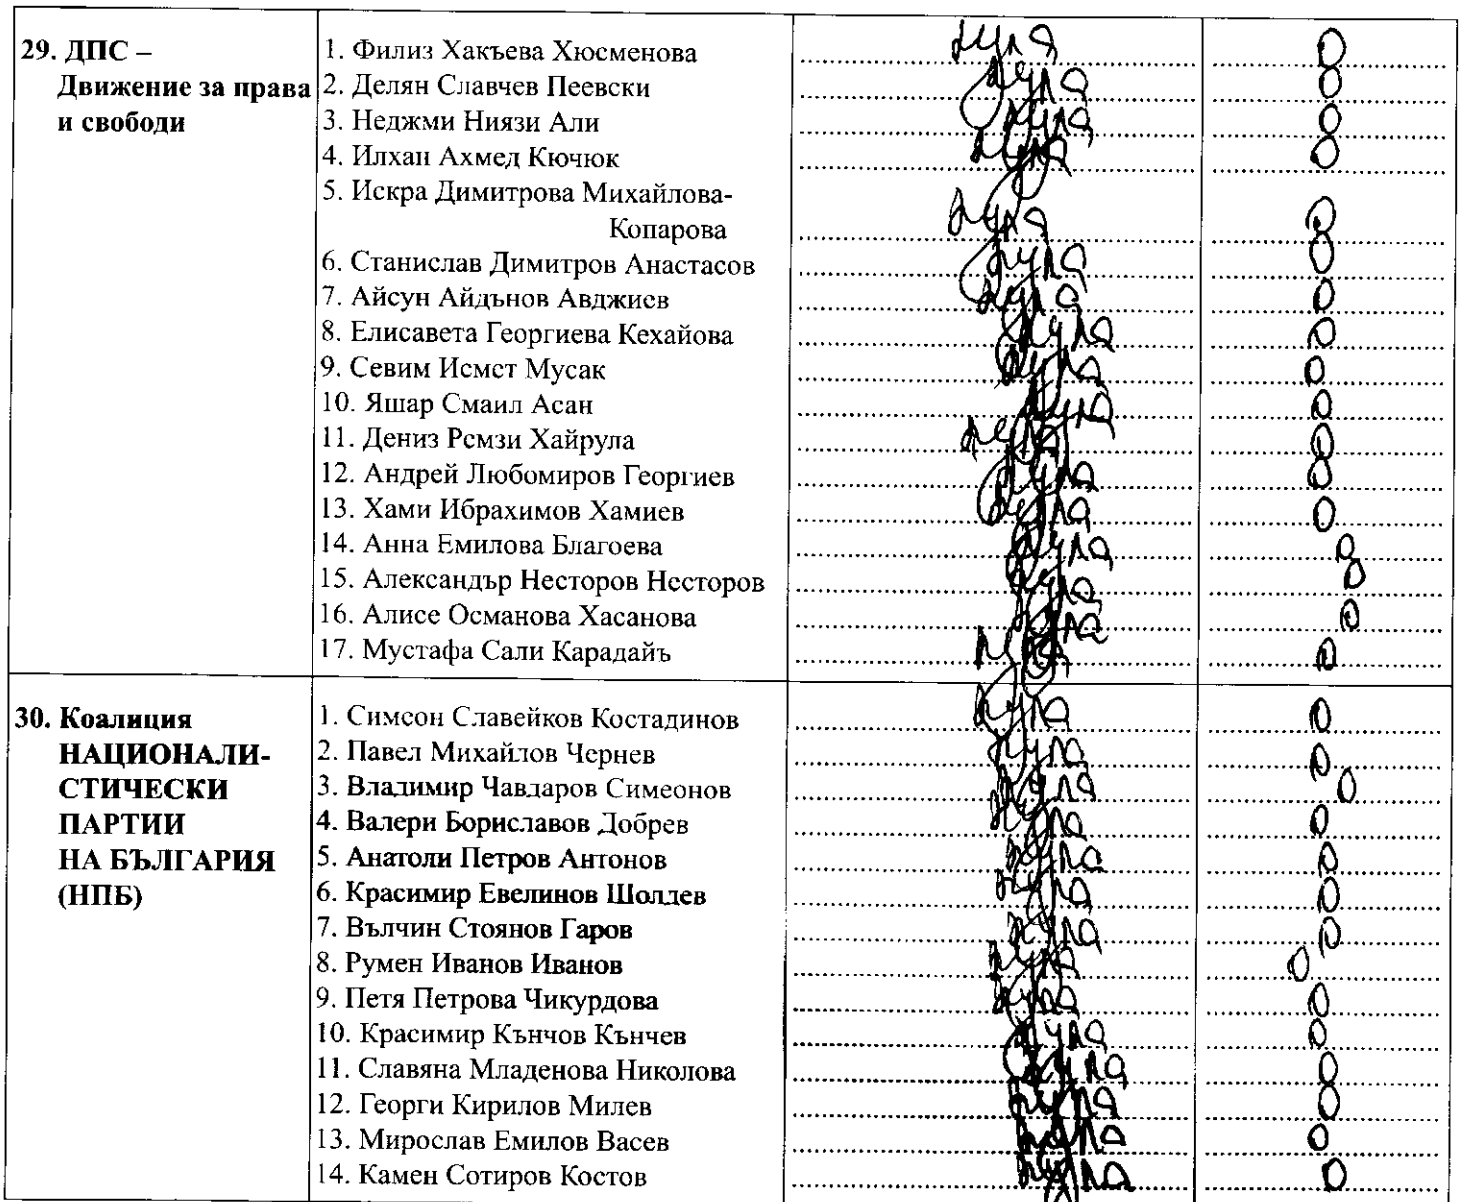 29. ДПС –
Движение за права
и свободи
1. Филиз Хакъева Хюсменова нула 0
2. Делян Славчев Пеевски нула 0
3. Неджми Ниязи Али нула 0
4. Илхан Ахмед Кючюк нула 0
5. Искра Димитрова Михайлова-
Копарова нула 0
6. Станислав Димитров Анастасов нула 0
7. Айсун Айдънов Авджиев нула 0
8. Елисавета Георгиева Кехайова нула 0
9. Севим Исмет Мусак нула 0
10. Яшар Смаил Асан нула 0
11. Дениз Ремзи Хайрула нула 0
12. Андрей Любомиров Георгиев нула 0
13. Хами Ибрахимов Хамиев нула 0
14. Анна Емилова Благоева нула 0
15. Александър Несторов Несторов нула 0
16. Алисе Османова Хасанова нула 0
17. Мустафа Сали Карадайъ 0
30. Коалиция
НАЦИОНАЛИ-
СТИЧЕСКИ
ПАРТИИ
НА БЪЛГАРИЯ
(НПБ)
1. Симеон Славейков Костадинов нула 0
2. Павел Михайлов Чернев нула 0
3. Владимир Чавдаров Симеонов нула 0
4. Валери Бориславов Добрев нула 0
5. Анатоли Петров Антонов нула 0
6. Красимир Евелинов Шолдев нула 0
7. Вълчин Стоянов Гаров нула 0
8. Румен Иванов Иванов нула 0
9. Петя Петрова Чикурдова нула 0
10. Красимир Кънчов Кънчев нула 0
11. Славяна Младенова Николова нула 0
12. Георги Кирилов Милев нула 0
13. Мирослав Емилов Васев нула 0
14. Камен Сотиров Костов нула 0